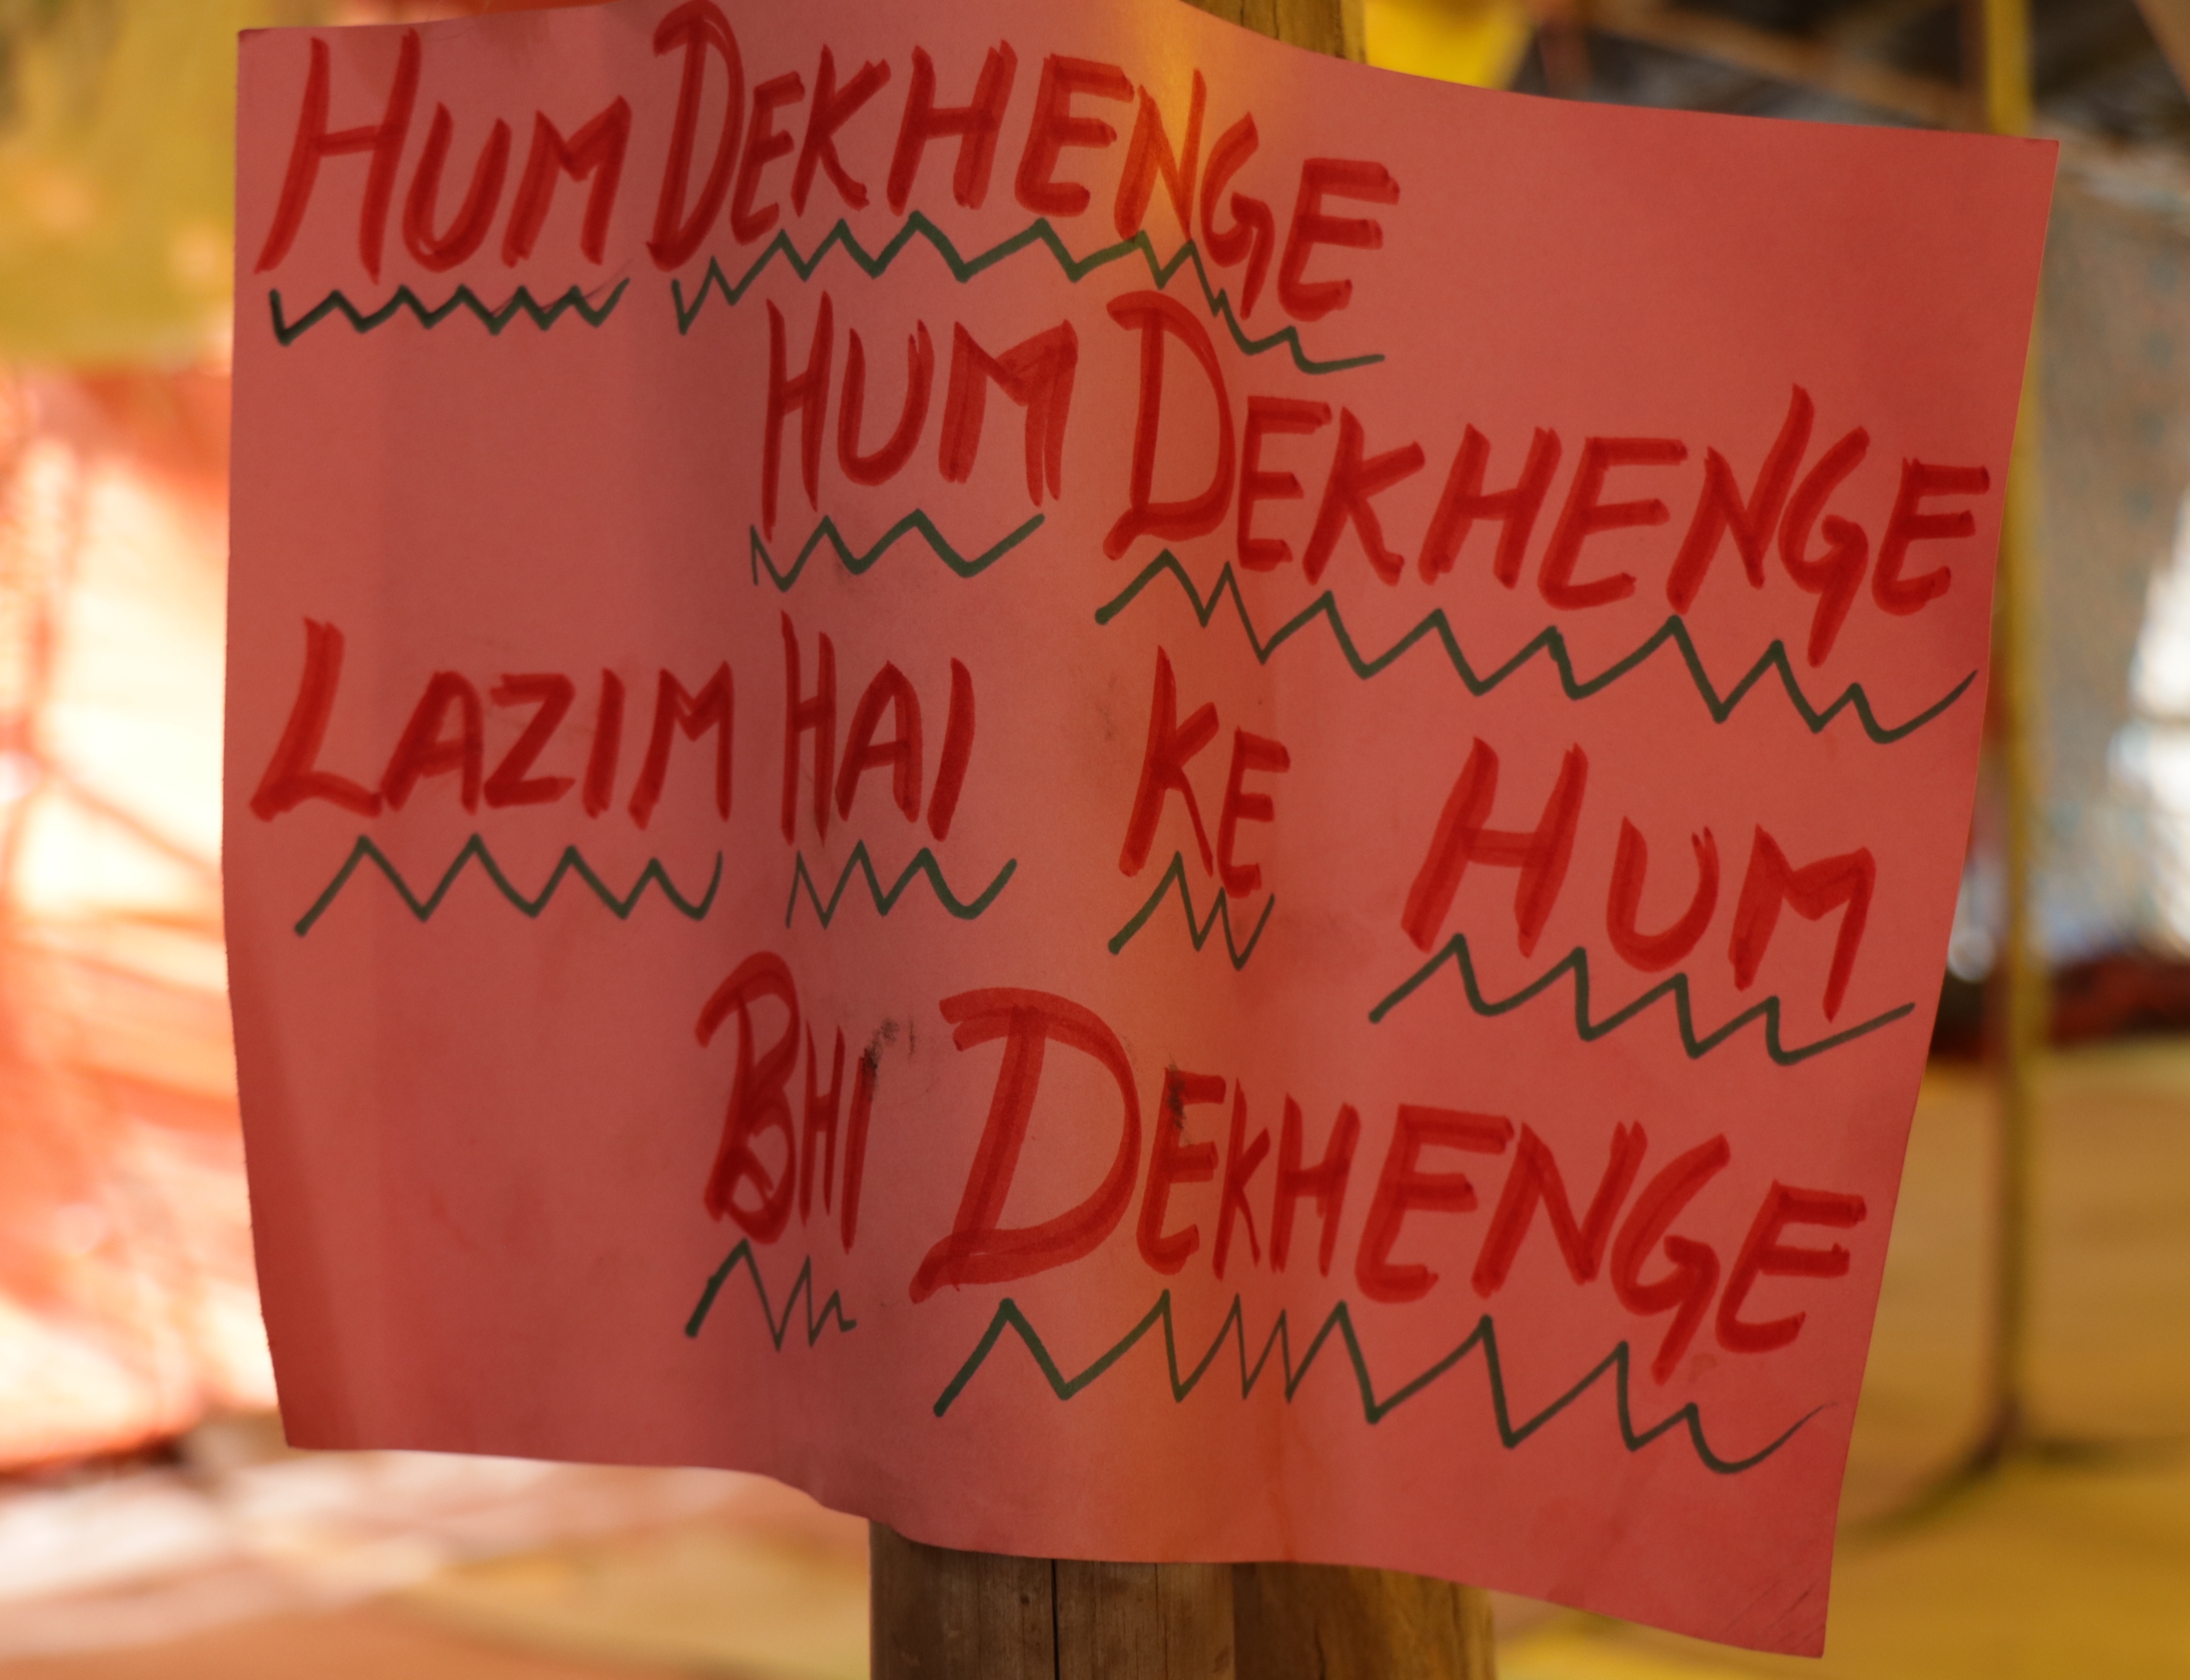 HUM DEKHENGE
HUM DEKHENGE
LAZIM HAI KE HUM
BHI DEKHENGE